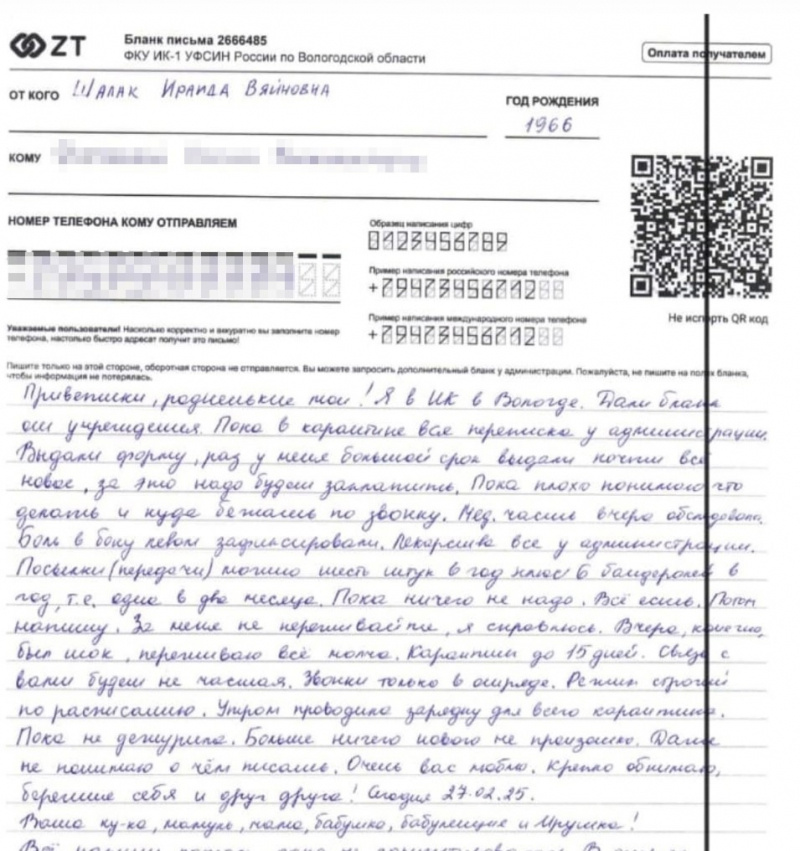 ZT
Бланк письма 2666485
ФКУ ИК-1 УФСИН России по Вологодской области
Оплата получателем
ОТ КОГО Шалак Ираида Вяйновна
ГОД РОЖДЕНИЯ
1966
КОМУ
НОМЕР ТЕЛЕФОНА КОМУ ОТПРАВЛЯЕМ
Образец написания цифр
0123456789
Пример написания российского номера телефона
+79473456712
Пример написания международного номера телефона
+79473456712
Не испортъ QR код
Уважаемые пользователи! Насколько корректно и аккуратно вы заполните номер
телефона, настолько быстро адресат получит это письмо!
Пишите только на этой стороне, оборотная сторона не отправляется. Вы можете запросить дополнительный бланк у администрации. Пожалуйста, не пишите на полях бланка,
чтобы информация не потерялась.
Приветики, родненькие мои! Я в ИК в Вологде. Дали бланк
они учреждения. Пока в карантине вся переписка у администрации.
Выдали форму, раз у меня большой срок выдали почти всё
новое, за это надо будет заплатить. Пока плохо понимаю что
делать и куда бежать по звонку. Мед. часть вчера обследовала.
Боль в боку левом зафиксировали. Лекарства все у администрации.
Посылки (передачи) можно шесть штук в год плюс 6 бандеролей в
год, т.е. одна в два месяца. Пока ничего не надо. Всё есть. Потом
напишу. За меня не переживайте, я справлюсь. Вчера, конечно,
был шок, переживаю всё молча. Карантин до 15 дней. Связь с
вами будет не частая. Звонки только в отряде. Режим строгий
по расписанию. Утром проводила зарядку для всего карантина.
Пока не дежурила. Больше ничего нового не произошло. Даже
не понимаю о чём писать. Очень вас люблю. Крепко обнимаю,
берегите себя и друг друга! Сегодня 27.02.25.
Ваша ку-ка, мамуль, мама, бабушка, бабуленция и Ирушка!